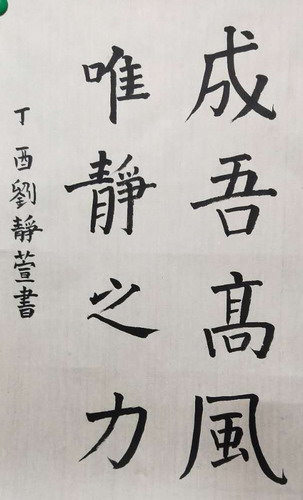 成吾髙風
唯靜之力
丁酉劉靜萱書